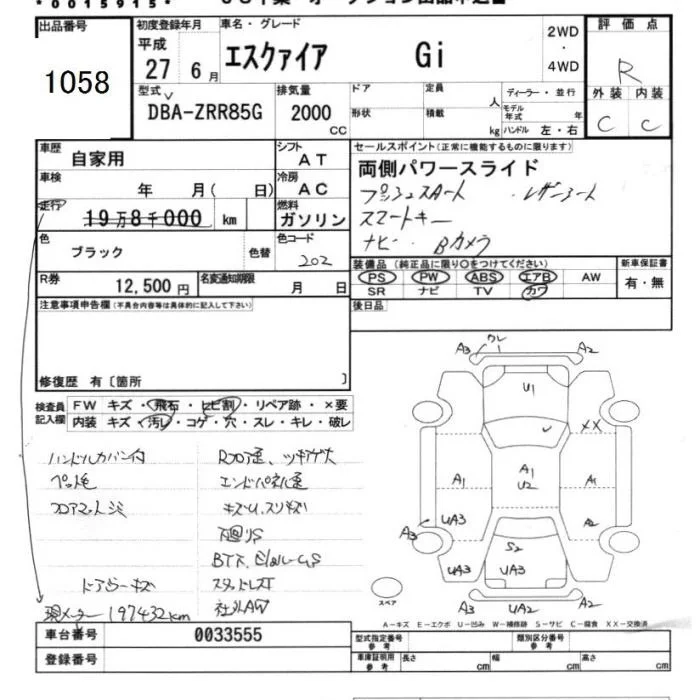 *0015915*
出品番号
1058
初度登録年月
平成
27 6月
車名・グレード
エスクァイア Gi
2WD
・
4WD
評価点
R
外装 内装
C C
型式
DBA-ZRR85G
排気量
2000
CC
ドア
形状
定員
人
積載
kg
ディーラー・並行
モデル
年式 年
ハンドル 左・右
車歴
自家用
シフト
AT
車検
年 月( 日)
冷房
AC
走行
19万8千000 km
燃料
ガソリン
色
ブラック
色替
色コード
202
R券
12,500円
名変通知期限
月 日
セールスポイント(正常に機能するものに限ります)
両側パワースライド
プッシュスタート ・レザーシート
スマートキー
ナビ・ Bカメラ
装備品(純正品に限り○をつけてください)
PS PW ABS エアB AW
SR ナビ TV カワ
新車保証書
有・無
後日品
注意事項申告欄(不具合内容等は具体的に記入して下さい)
修復歴 有〔箇所 〕
検査員
記入欄
FW キズ・飛石・ヒビ割・リペア跡・×要
内装 キズ・汚レ・コゲ・穴・スレ・キレ・破レ
ハンドルカバー付
ペット毛
フロアマットシミ
ドアミラーキズ
現メーター197432km
Rフロア歪、ツキアゲ大
エンドパネル歪
キズU、スリキズ
下廻りS
スタッドレスT
社外AW
A3
A2
U1
XX
A1
A1
U2
A1
UA3
A2
A3
S2
UA3
UA3
A3
UA2
A2
スペア
A―キズ E―エクボ U―凹み W―補修跡 S―サビ C―腐食 XX―交換済
車台番号
0033555
登録番号
型式指定番号
参考
類別区分番号
参考
車庫証明用
参考
長さ cm
幅 cm
高さ cm